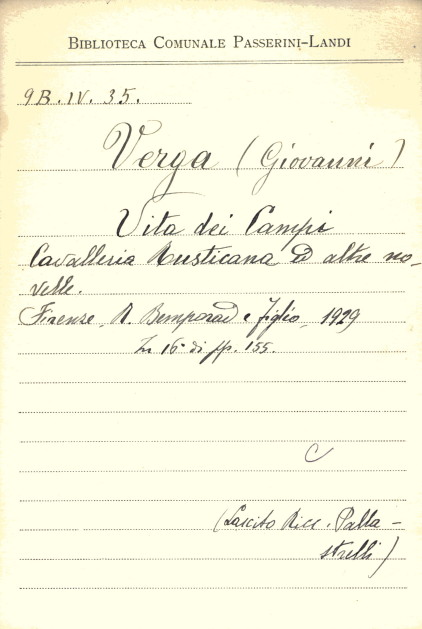 BIBLIOTECA COMUNALE PASSERINI-LANDI
9B.IV.35.
Verga (Giovanni)
Vita dei Campi
Cavalleria Rusticana ed altre no-
velle.
Firenze, R. Bemporad e figlio, 1929
In 16° di pp. 155.
C
(Lascito Ricc. Palla-
strelli)